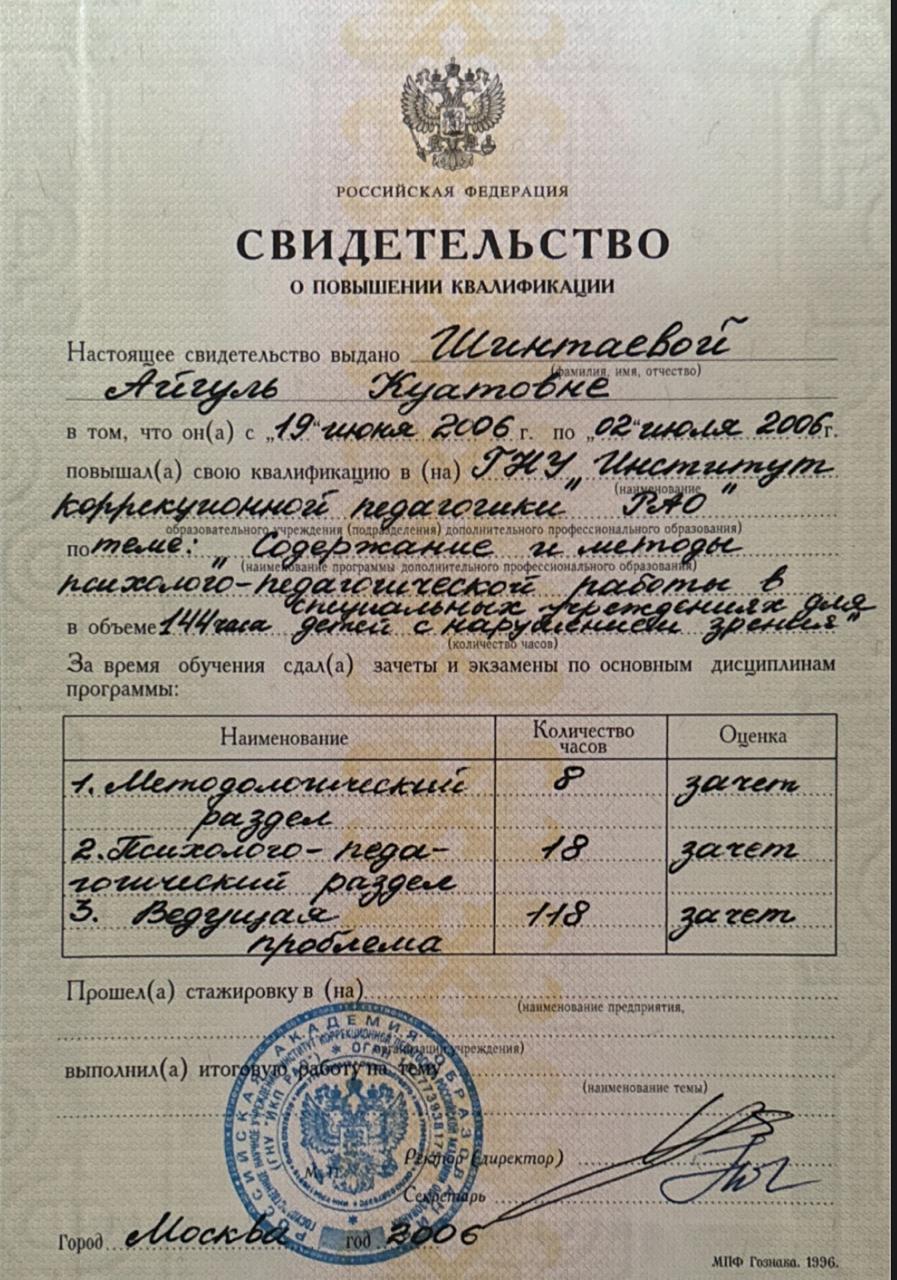 РОССИЙСКАЯ ФЕДЕРАЦИЯ
СВИДЕТЕЛЬСТВО
О ПОВЫШЕНИИ КВАЛИФИКАЦИИ
Настоящее свидетельство выдано Шинтаевой
(фамилия, имя, отчество)
Айгуль Куатовне
в том, что он(а) с „19“ июня 2006 г. по „02“ июля 2006г.
повышал(а) свою квалификацию в (на) ГНУ „Институт
(наименование
коррекционной педагогики РАО"
образовательного учреждения (подразделения) дополнительного профессионального образования)
по теме: „Содержание и методы
(наименование программы дополнительного профессионального образования)
психолого-педагогической работы в
специальных учреждениях для
в объеме 144 часа детей с нарушением зрения"
(количество часов)
За время обучения сдал(а) зачеты и экзамены по основным дисциплинам
программы:
Наименование Количество часов Оценка
1. Методологический раздел 8 зачет
2. Психолого-педа-
гогический раздел 18 зачет
3. Ведущая проблема 118 зачет
Прошел(а) стажировку в (на)
(наименование предприятия,
организации, учреждения)
выполнил(а) итоговую работу на тему
(наименование темы)
РОССИЙСКАЯ АКАДЕМИЯ ОБРАЗОВАНИЯ
М.П.
Ректор (директор)
Секретарь
Город Москва год 2006
МПФ Гознака. 1996.